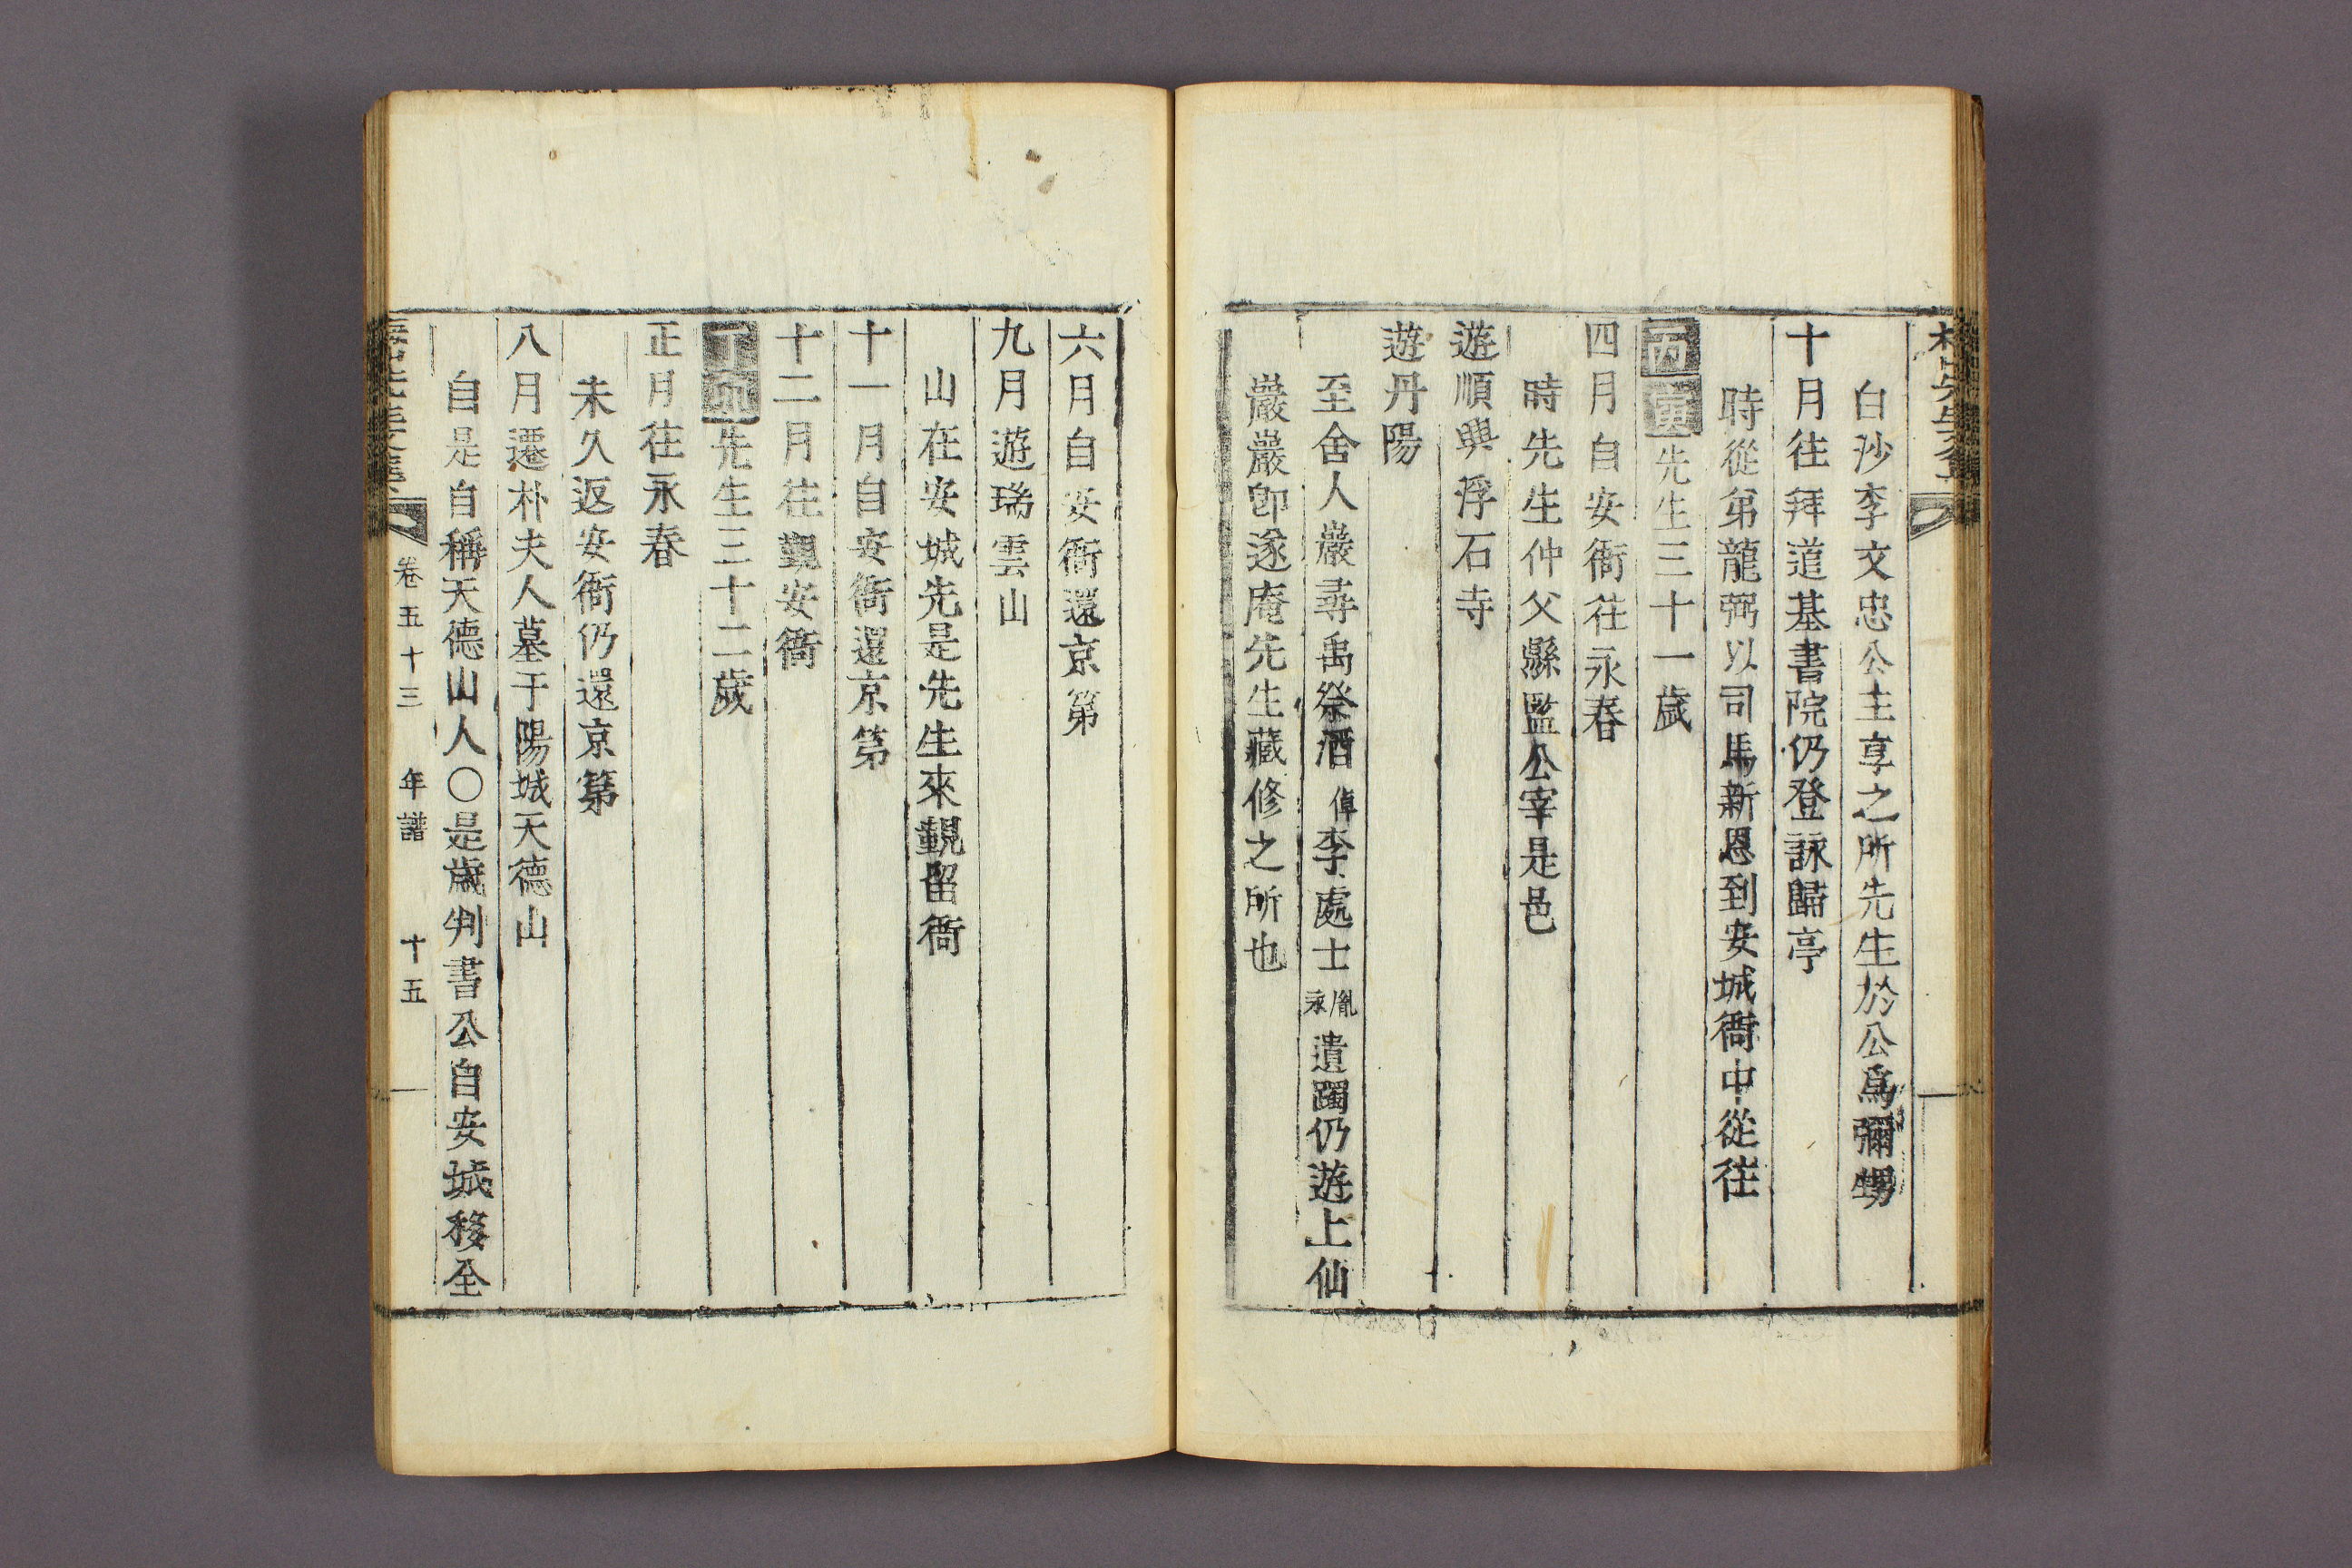 白沙李文忠公主享之所先生於公爲彌甥
十月往拜道基書院仍登詠歸亭
時從弟龍弼以司馬新恩到安城衙中從往
丙寅先生三十一歲
四月自安衙往永春
時先生仲父縣監公宰是邑
遊順興浮石寺
遊丹陽
至舍人巖尋禹祭酒倬李處士胤永遺躅仍遊上仙
巖巖卽遂庵先生藏修之所也
六月自安衙還京第
九月遊瑞雲山
山在安城先是先生來覲留衙
十一月自安衙還京第
十二月往覲安衙
丁卯先生三十二歲
正月往永春
未久返安衙仍還京第
八月遷朴夫人墓于陽城天德山
自是自稱天德山人○是歲判書公自安城移全
卷五十三 年譜 十五